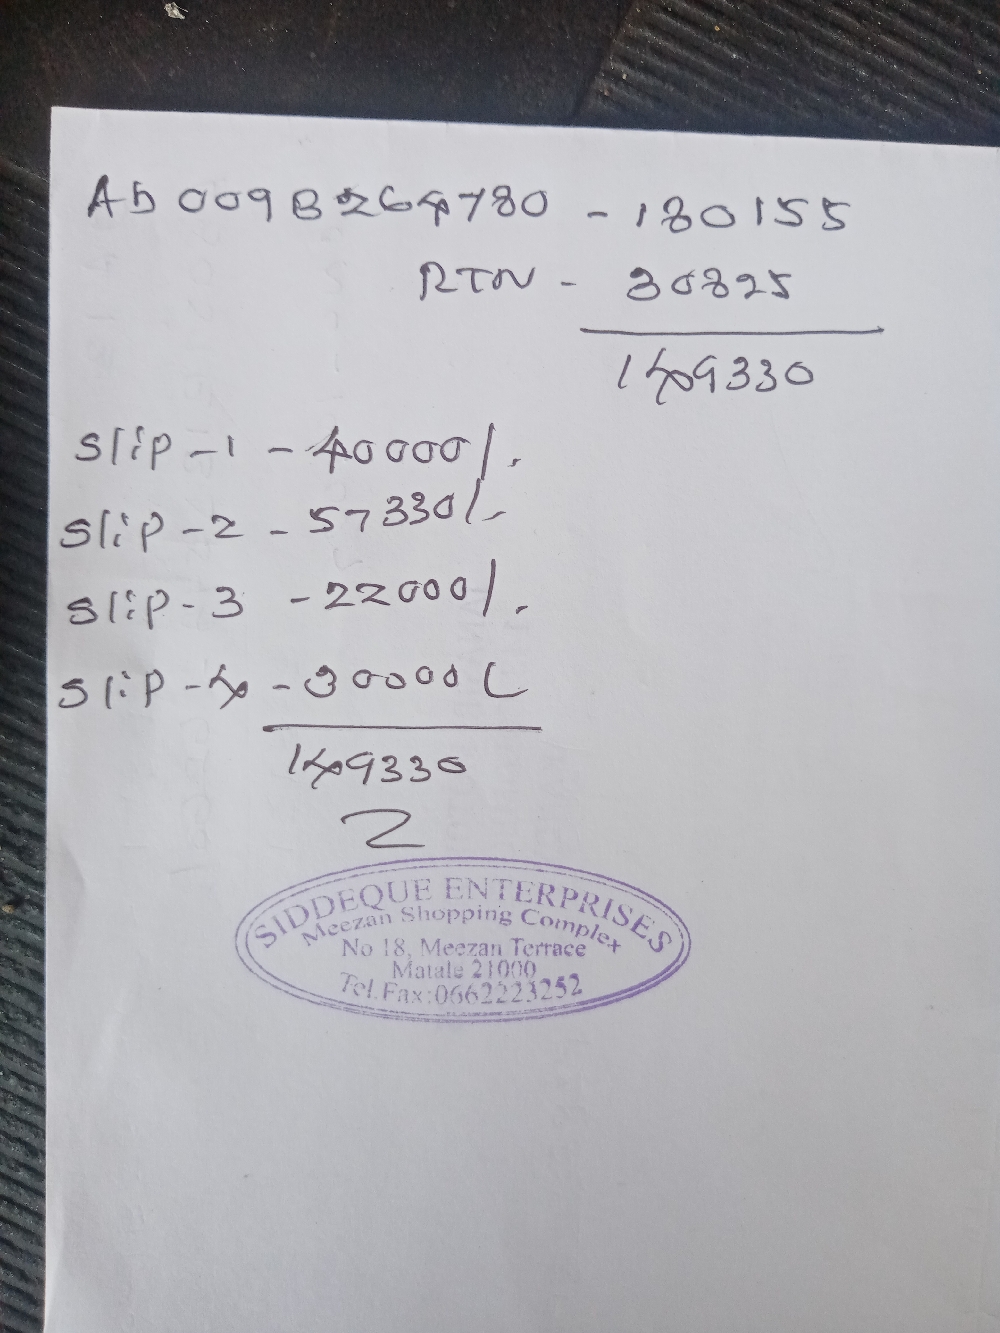 AD009B264780 - 180155
RTN - 30825
149330
Slip-1 - 40000/.
Slip-2 - 57330/-
Slip-3 - 22000/.
Slip-4 - 30000/
149330
SIDDEQUE ENTERPRISES
Meezan Shopping Complex
No 18, Meezan Terrace
Matale 21000
Tel.Fax:0662223252